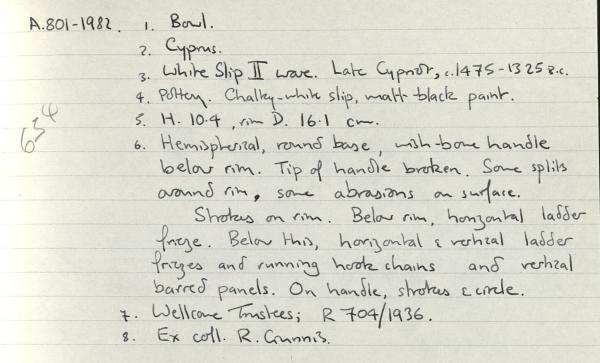 A.801-1982. 1. Bowl.
2. Cyprus.
3. White Slip II ware. Late Cypriot, c.1475-1325 B.C.
4. Pottery. Chalky-white slip, matt black paint.
5. H. 10.4, rim D. 16.1 cm.
6. Hemispherical, round base, wish-bone handle
below rim. Tip of handle broken. Some splits
around rim, some abrasions on surface.
Strokes on rim. Below rim, horizontal ladder
frieze. Below this, horizontal & vertical ladder
friezes and running hook chains and vertical
barred panels. On handle, strokes & circle.
7. Wellcome Trustees; R 704/1936.
8. Ex coll. R. Gunnis.
634